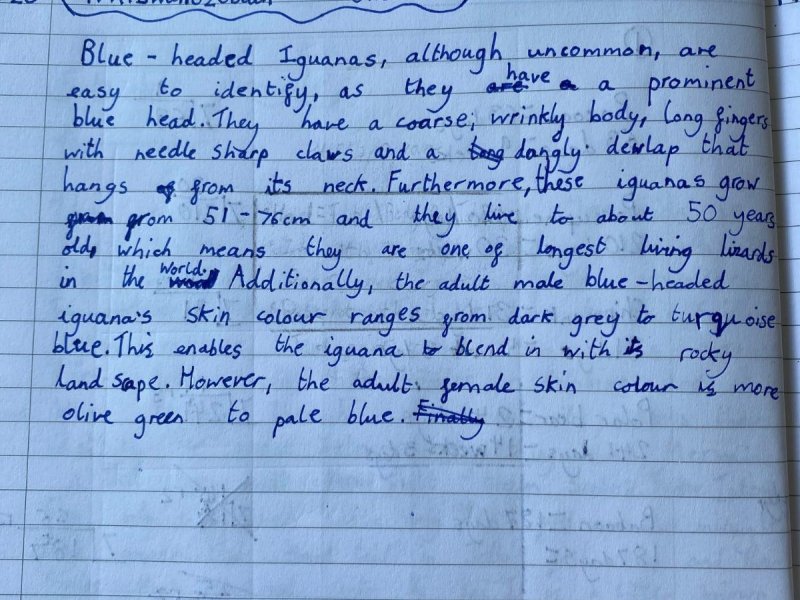 Blue - headed Iguanas, although uncommon, are
easy to identify, as they have a prominent
blue head. They have a coarse, wrinkly body, long fingers
with needle sharp claws and a dangly dewlap that
hangs from its neck. Furthermore, these iguanas grow
from 51 - 76cm and they live to about 50 years
old, which means they are one of longest living lizards
in the world. Additionally, the adult male blue-headed
iguana's skin colour ranges from dark grey to turquoise
blue. This enables the iguana to blend in with its rocky
land sape. However, the adult female skin colour is more
olive green to pale blue. Finally